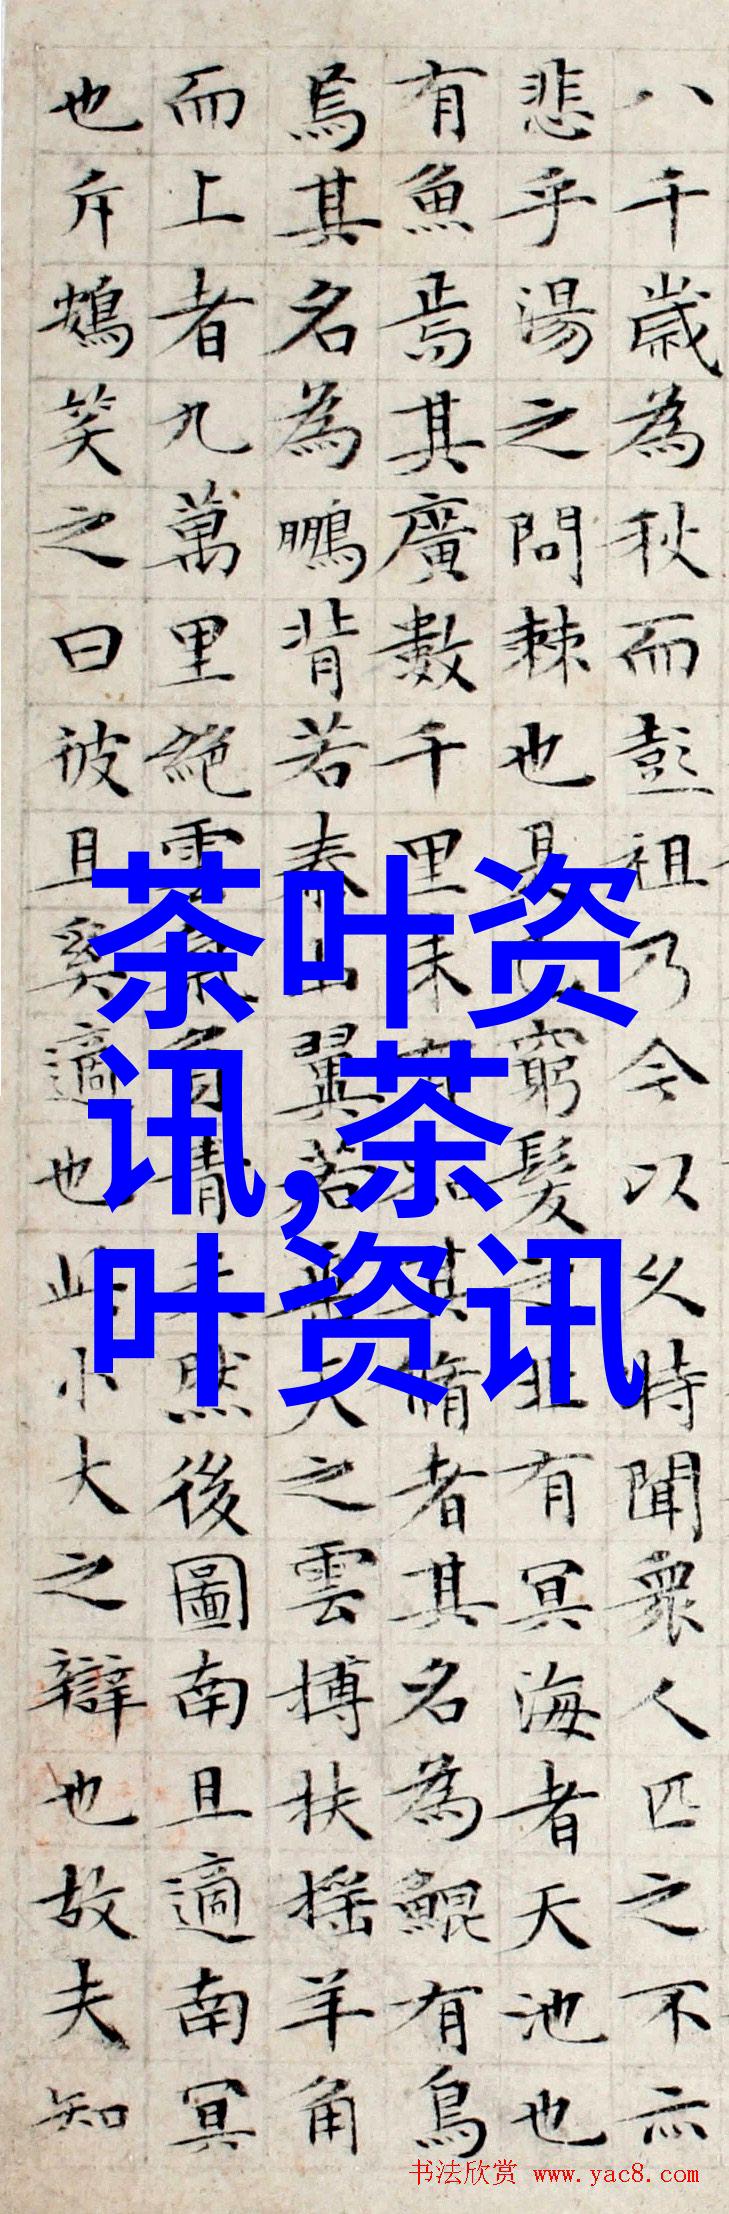 八千歲為秋而彭祖乃今以久時聞衆人匹之不亦
悲乎湯之問棘也是已窮髮之北有冥海者天池也
有魚焉其廣數千里未有知其脩者其名為鯤有鳥
焉其名為鵬背若泰山翼若垂天之雲搏扶搖羊角
而上者九萬里絕雲氣負青天然後圖南且適南冥
也斥鴳笑之曰彼且奚適也此小大之辯也故夫知
茶叶资
讯,茶
叶资讯
书法欣赏 www.yac8.com